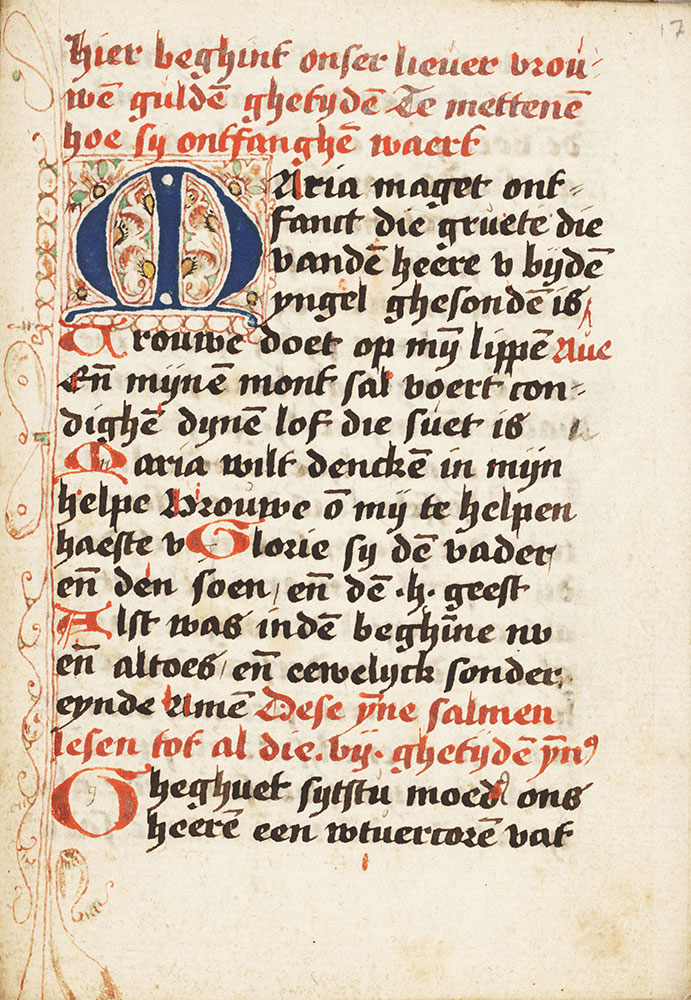 17
hier beghint onser lieuer vrou-
wē guldē ghetijdē Te mettenē
hoe sij ontfanghē waert
Maria maget ont-
fanct die gruete die
vandē heere v bijdē
yngel ghesondē is
Vrouwe doet op mȳ lippē Aue
Eñ mijnē mont sal voert con-
dighē dijnē lof die suet is
Maria wilt denckē in mijn
helpe Vrouwe ō mij te helpen
haeste v Glorie sij dē vader
eñ den soen / eñ dē .h. geest
Alst was indē beghīne nv
eñ altoes / eñ eewelijck sonder
eynde Amē Dese ȳne salmen
lesen tot al die .vij. ghetijdē
Gheghuet sijtstu moed ons
heerē een wtuercorē vat